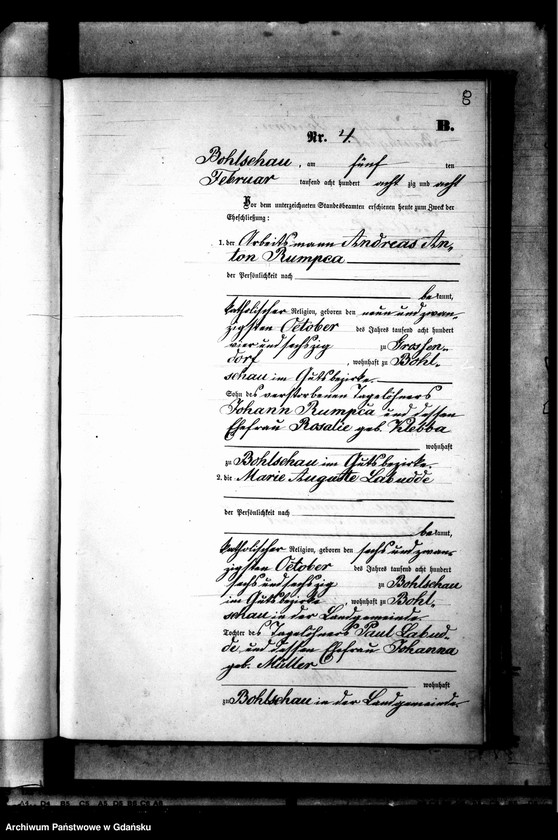 8
B.
Nr. 4.
Bohlschau, am fünf ten
Februar tausend acht hundert acht zig und acht
Vor dem unterzeichneten Standesbeamten erschienen heute zum Zweck der
Eheschließung:
1. der Arbeitsmann Andreas An-
ton Rumpca
der Persönlichkeit nach
bekannt,
katholischer Religion, geboren den neun und zwan-
zigsten October des Jahres tausend acht hundert
vier und sechszig zu Grossen-
dorf, wohnhaft zu Bohl-
schau im Gutsbezirke.
Sohn des verstorbenen Tagelöhners
Johann Rumpca und dessen
Ehefrau Rosalie geb. Klebba
wohnhaft
zu Bohlschau im Gutsbezirke.
2. die Marie Auguste Labudde
der Persönlichkeit nach
bekannt,
katholischer Religion, geboren den sechs und zwan-
zigsten October des Jahres tausend acht hundert
sechs und sechszig zu Bohlschau
im Gutsbezirke, wohnhaft zu Bohl-
schau in der Landgemeinde.
Tochter des Tagelöhners Paul Labud-
de und dessen Ehefrau Johanna
geb. Müller
wohnhaft
zu Bohlschau in der Landgemeinde.
Archiwum Państwowe w Gdańsku